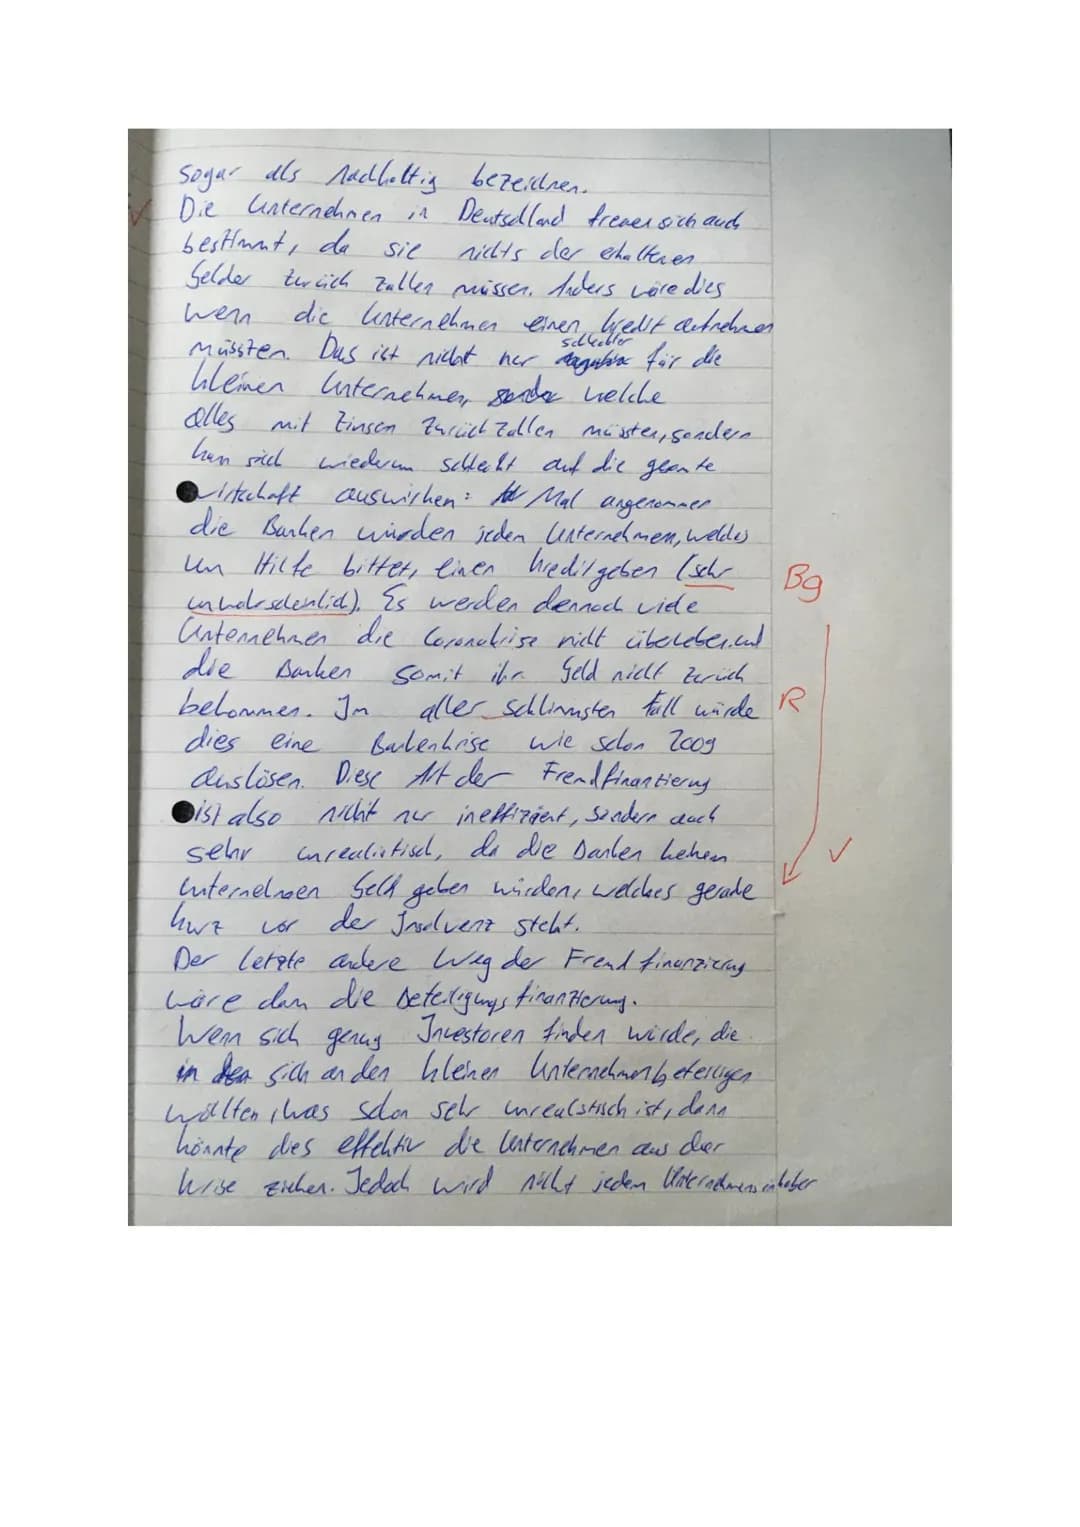 sogar als nachhaltig bezeichnen.
Die Unternehmen in Deutschland freuen sich auch
bestimmt, da sie nichts der erhaltenen
Gelder zurück zahlen müssen. Anders wäre dies
wenn die Unternehmen einen Kredit aufnehmen
müssten. Das ist nicht nur schlechter für die
kleinen Unternehmen, welche
alles mit Zinsen zurück zahlen müssten, sondern
kann sich wiederum schlecht auf die gesamte
Wirtschaft auswirken: Mal angenommen
die Banken würden jedem Unternehmen, welches
um Hilfe bittet, einen Kredit geben (sehr
unwahrscheinlich). Es werden dennoch viele
Bg
Unternehmen die Coronakrise nicht überleben und
die Banken somit ihr Geld nicht zurück
bekommen. Im aller schlimmsten Fall würde
R
dies eine Bankenkrise wie schon 2009
auslösen. Diese Art der Fremdfinanzierung
ist also nicht nur ineffizient, sondern auch
sehr unrealistisch, da die Banken keinem
Unternehmen Geld geben würden, welches gerade
kurz vor der Insolvenz steht.
Der letzte andere Weg der Fremdfinanzierung
wäre dann die Beteiligungsfinanzierung.
Wenn sich genug Investoren finden würde, die
sich an den kleinen Unternehmen beteiligen
wollten, was schon sehr unrealistisch ist, dann
könnte dies effektiv die Unternehmen aus der
Krise ziehen. Jedoch wird nicht jedem Unternehmensinhaber